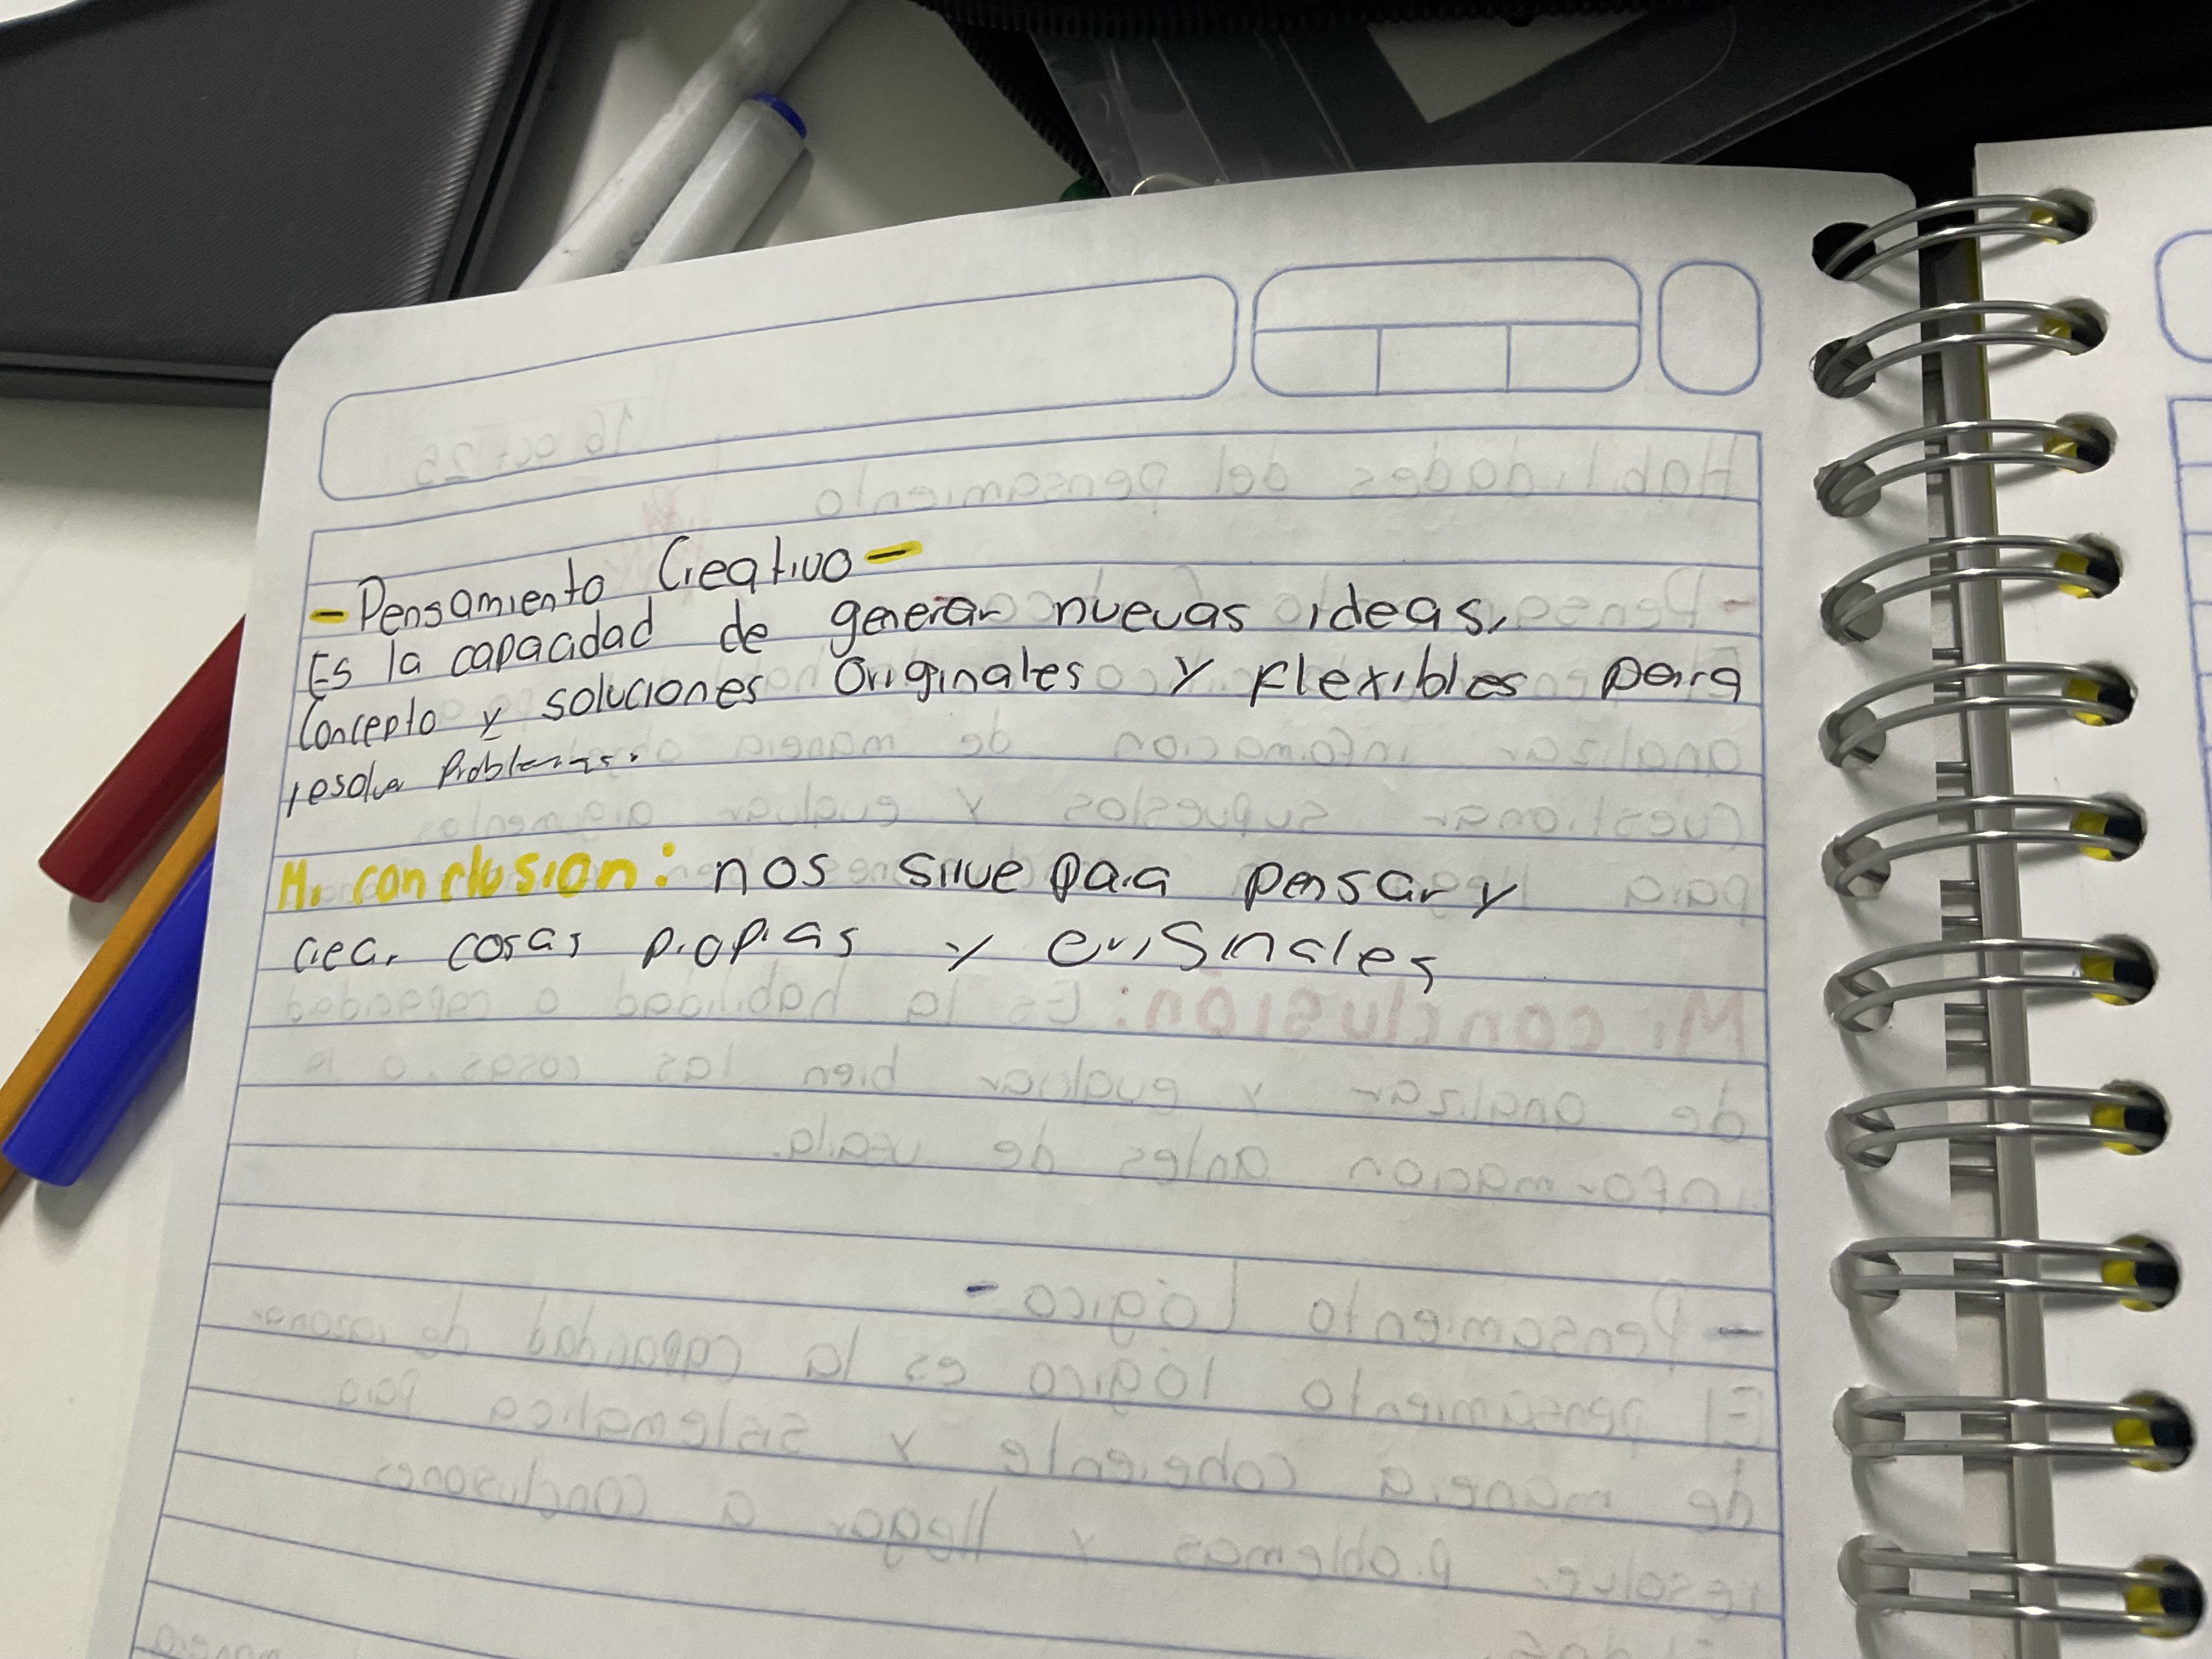 - Pensamiento Creativo -
Es la capacidad de generar nuevas ideas,
Concepto y soluciones Originales y flexibles para
resolver Problemas.
Mi conclusion: nos sirve para pensar y
crear cosas propias y originales